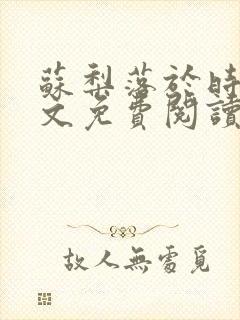 蘇梨落於時
文免費閱讀
故人無處覓